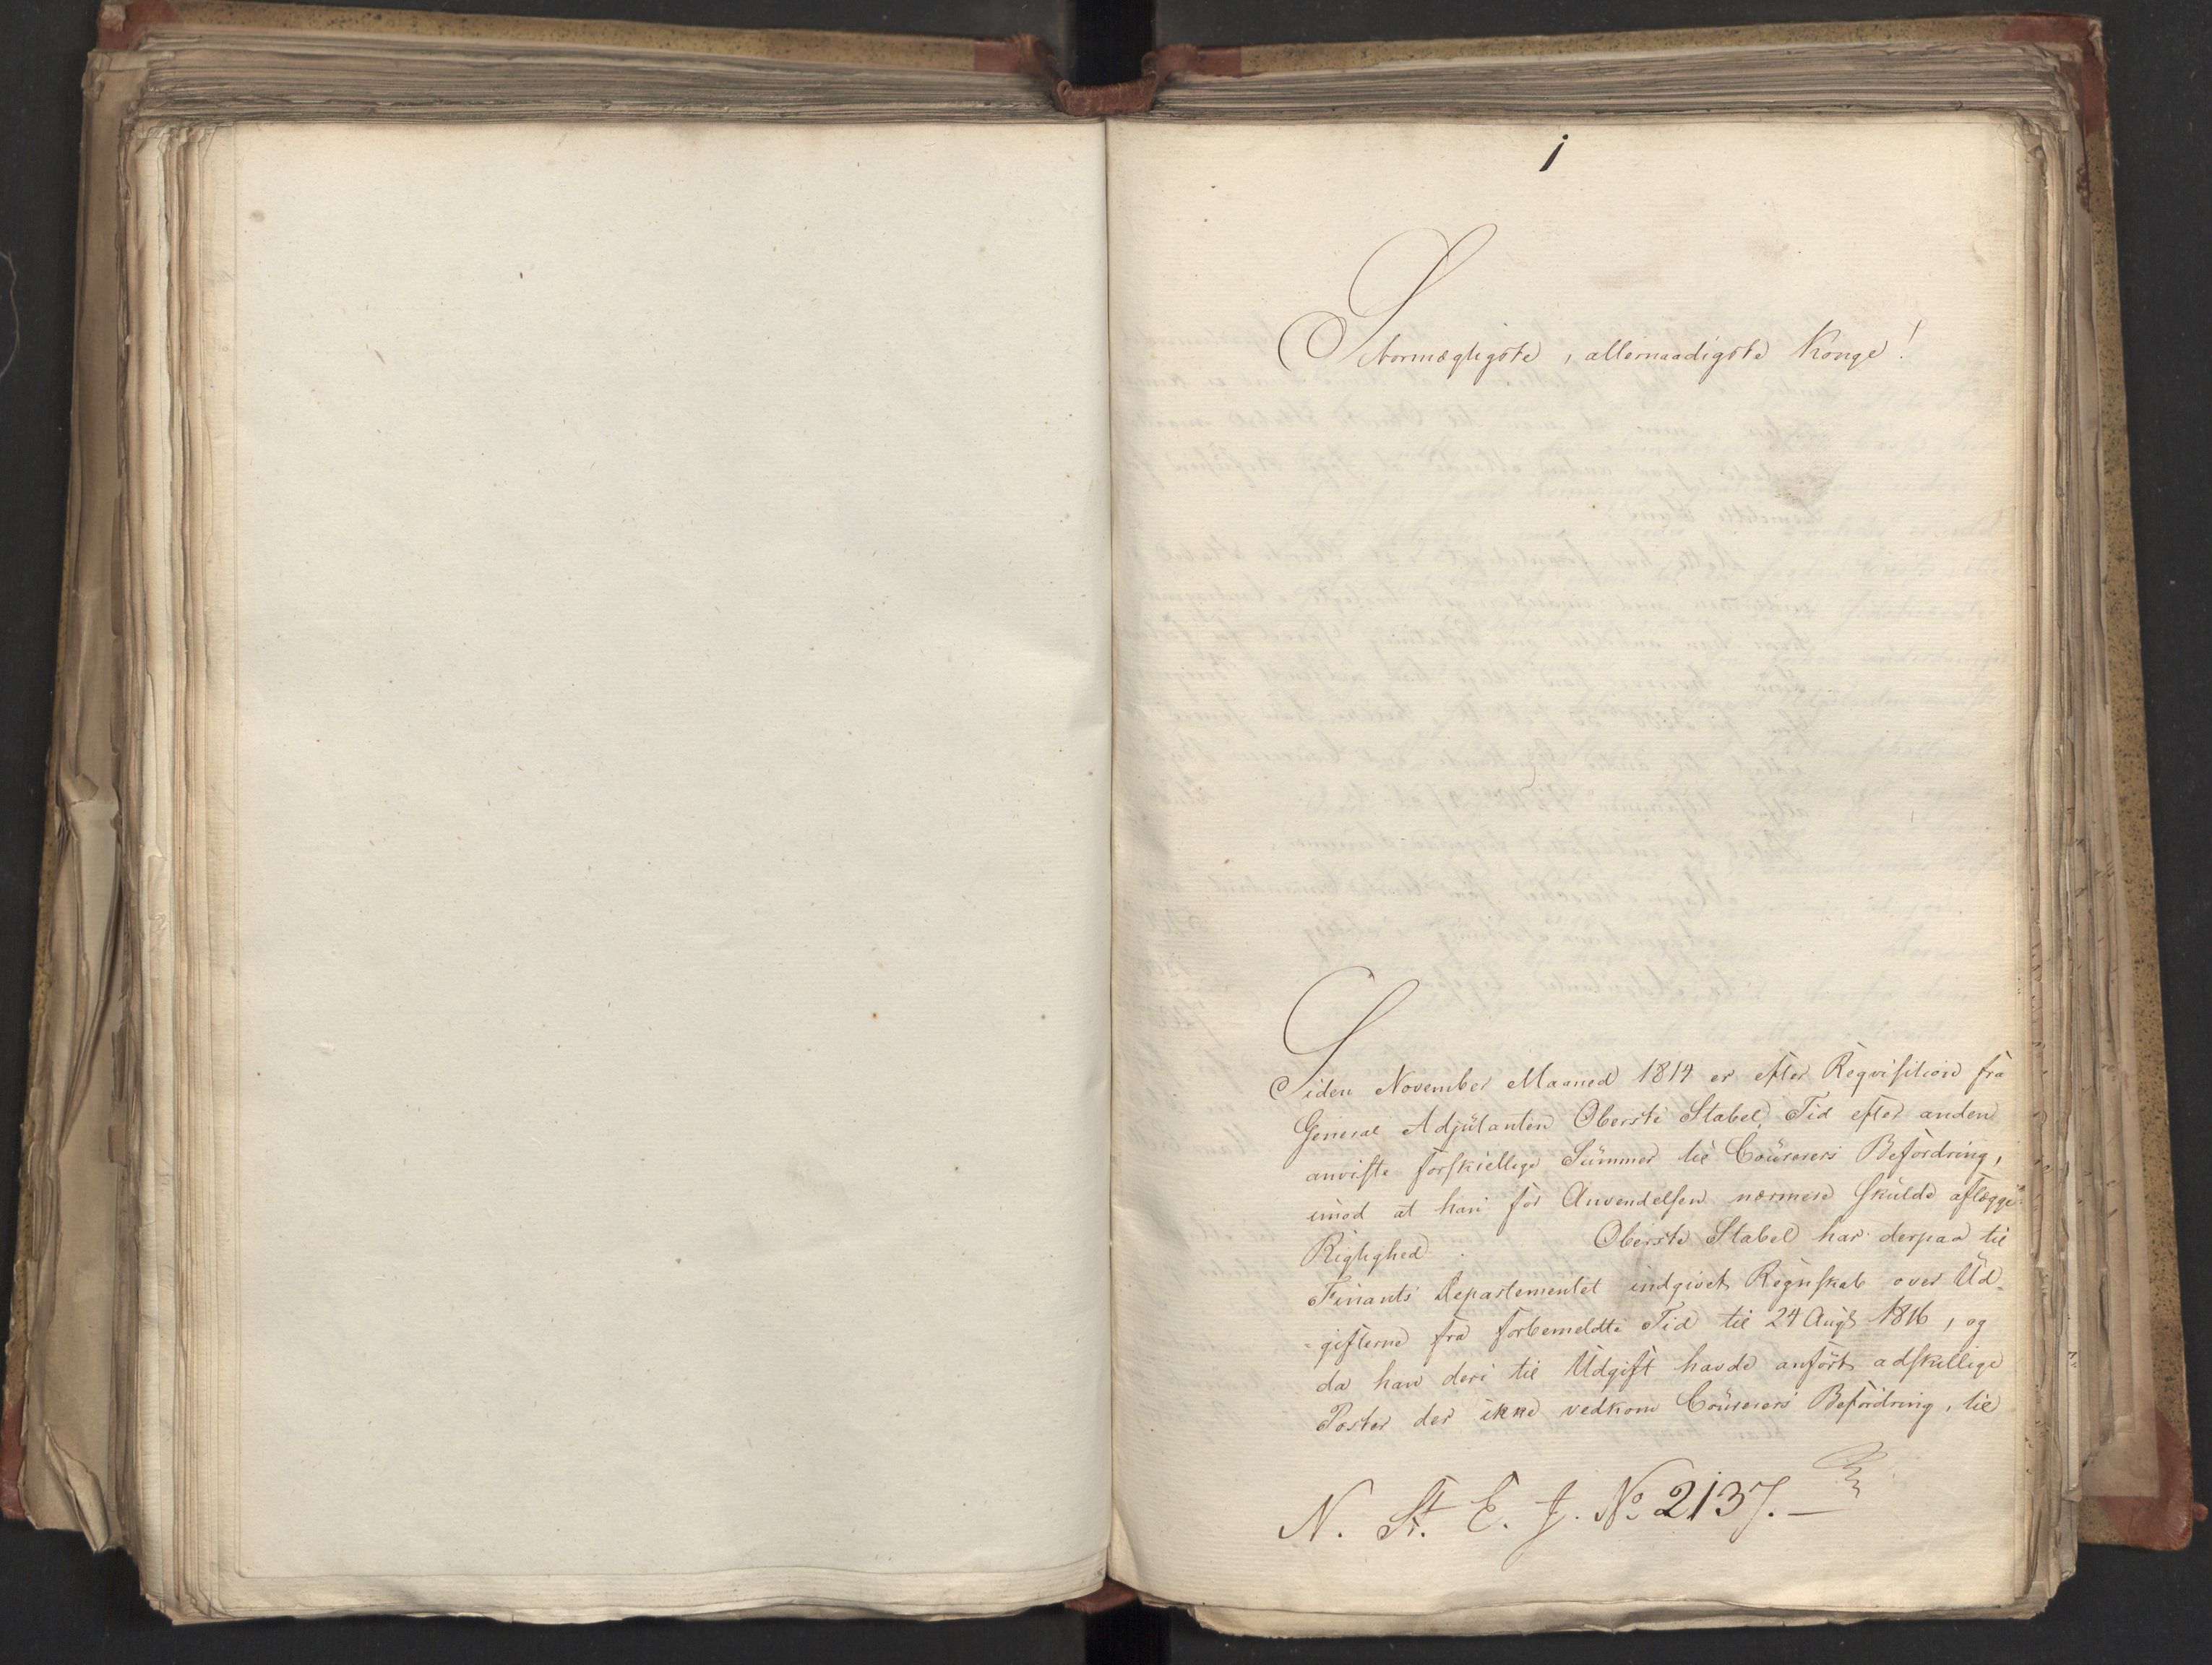 1
Stormægtigste, allernaadigste Konge!
Siden November Maaned 1814 er efter Reqvisition fra
General Adjütanten Oberste Stabel, Tid efter anden
anviste forskiellige Summer til Courerers Befordring,
imod at han for Anvendelsen nærmere skulde aflægge
Rigtighed. Oberste Stabel har derpaa til
Finants Departementet indgivet Regnskab over Ud-
-gifterne fra forbemeldte Tid til 24 Augt 1816, og
da han deri til Udgift havde anført adskillige
Poster der ikke vedkom Courerers Befordring, til
N. St. E. J. No 2137.